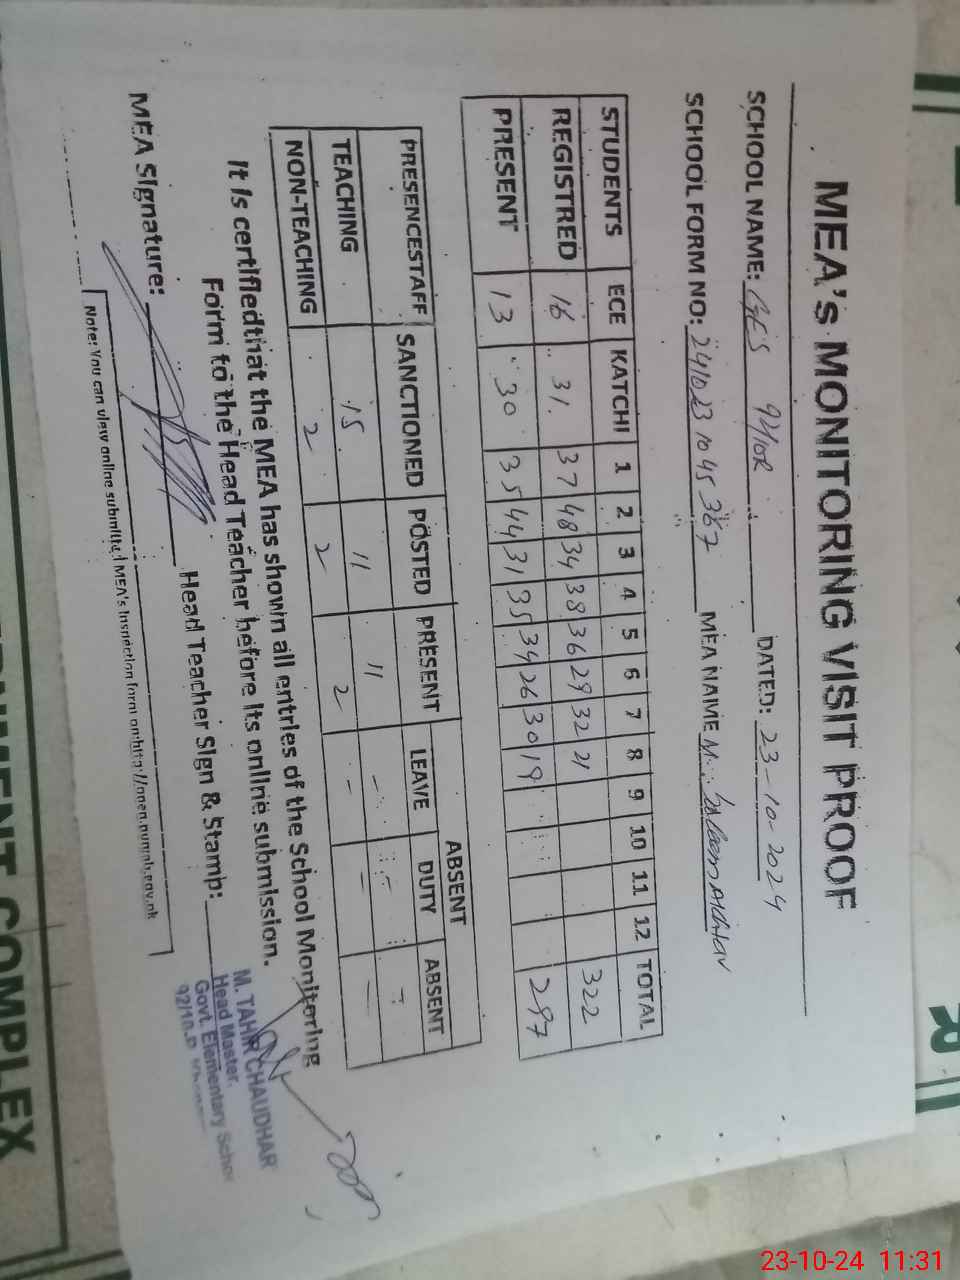 MEA'S MONITORING VISIT PROOF
SCHOOL NAME: GES 92/10R DATED: 23-10-2024
SCHOOL FORM NO: 2410231045367 MEA NAME M. Saleem Akhtar
STUDENTS ECE KATCHI 1 2 3 4 5 6 7 8 9 10 11 12 TOTAL
REGISTRED 16 31 37 48 34 38 36 29 32 21 322
PRESENT 13 30 35 44 31 35 34 26 30 19 297
ABSENT
PRESENCESTAFF SANCTIONED POSTED PRESENT LEAVE DUTY ABSENT
TEACHING 15 11 11 - - -
NON-TEACHING 2 2 2 - - -
It is certified that the MEA has shown all entries of the School Monitoring
Form to the Head Teacher before its online submission.
MEA Signature: Head Teacher Sign & Stamp:
M. TAHIR CHAUDHAR
Head Master,
Govt. Elementary School
92/10-R
Note: You can view online submitted MEA's Inspection form on http://open.punjab.gov.pk
RNMENT COMPLEX
R
23-10-24 11:31